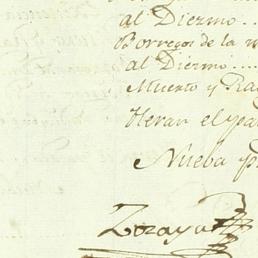 al Diezmo...
Borregos de la
al Diezmo....
Muerto y
Heran el
Nueba
Zozaya